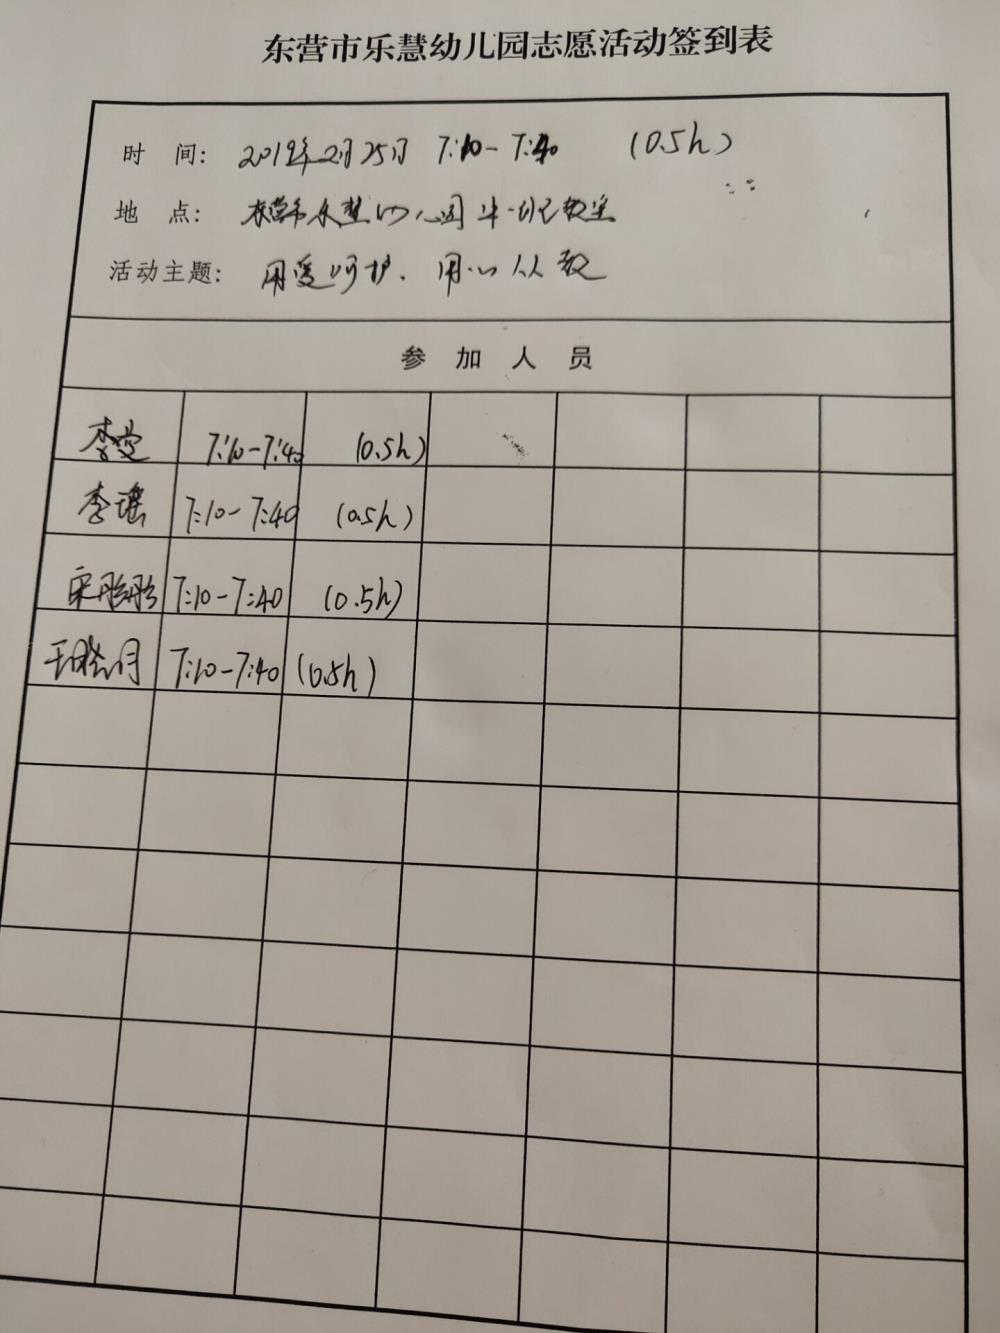 东营市乐慧幼儿园志愿活动签到表
时 间: 2019年2月25日 7:10-7:40 (0.5h)
地 点: 东营市乐慧幼儿园 一班教室
活动主题: 用爱呵护、用心从教
参加人员
李 7:10-7:40 (0.5h)
李瑶 7:10-7:40 (0.5h)
宋彤彤 7:10-7:40 (0.5h)
王晓月 7:10-7:40 (0.5h)